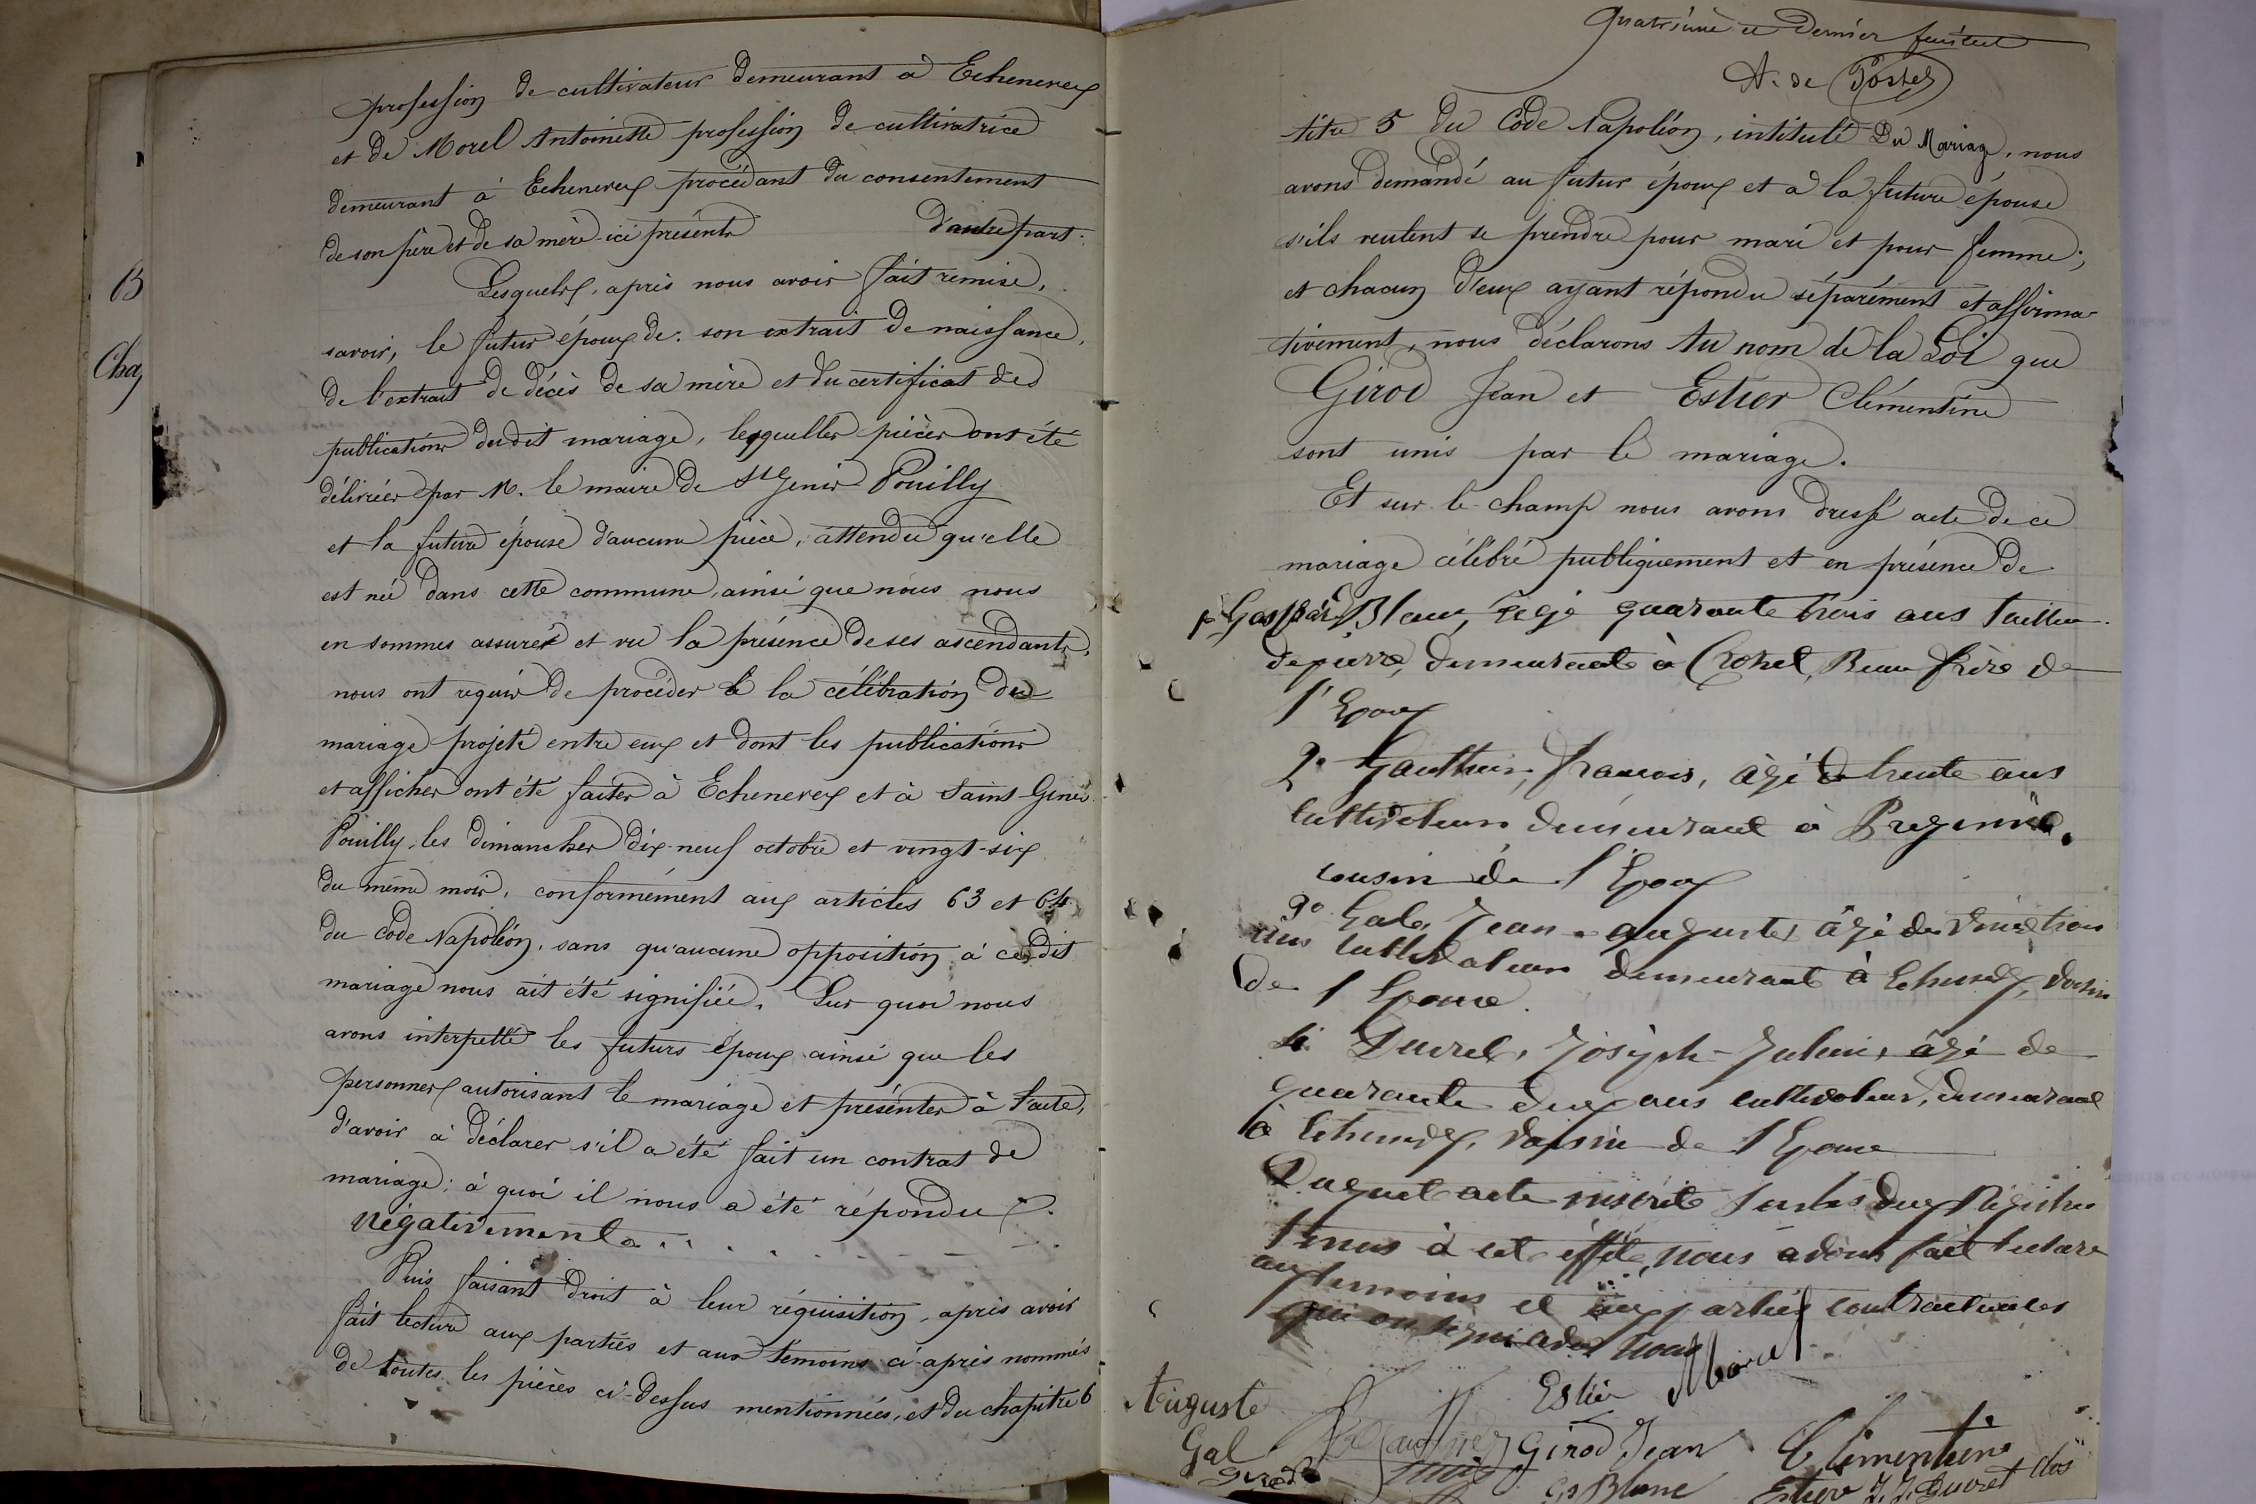 B
Cha
profession de cultivateur demeurant à Echenevex
et de Morel Antoinette profession de cultivatrice
demeurant à Echenevex procédant du consentement
de son père et de sa mère ici présents d'autre part.
Lesquels, après nous avoir fait remise,
savoir, le futur époux de: son extrait de naissance,
de l'extrait de décès de sa mère et du certificat des
publications dudit mariage, lesquelles pièces ont été
délivrées par M. le maire de St Genis Pouilly
et la future épouse d'aucune pièce, attendu qu'elle
est née dans cette commune, ainsi que nous nous
en sommes assurés et vu la présence de ses ascendants,
nous ont requis de procéder à la célébration du
mariage projeté entre eux et dont les publications
et affiches ont été faites à Echenevex et à Saint-Genis
Pouilly, les dimanches dix-neuf octobre et vingt-six
du même mois, conformément aux articles 63 et 64
du Code Napoléon, sans qu'aucune opposition à cedit
mariage nous ait été signifiée. Sur quoi nous
avons interpellé les futurs époux ainsi que les
personnes autorisant le mariage et présentes à l'acte,
d'avoir à déclarer s'il a été fait un contrat de
mariage: à quoi il nous a été répondu
négativement
Puis faisant droit à leur réquisition, après avoir
fait lecture aux parties et aux témoins ci-après nommés
de toutes les pièces ci-dessus mentionnées, et du chapitre 6
Quatrième et dernier feuillet
A. de Postel
titre 5 du Code Napoléon, intitulé Du Mariage, nous
avons demandé au futur époux et à la future épouse
s'ils veulent se prendre pour mari et pour femme;
et chacun d'eux ayant répondu séparément et affirma-
tivement, nous déclarons Au nom de la Loi que
Girod Jean et Estier Clémentine
sont unis par le mariage.
Et sur le champ nous avons dressé acte de ce
mariage célébré publiquement et en présence de
Gaspard Blanc, âgé quarante trois ans tailleur
de pierre, demeurant à Crozet, Beau frère de
l'Epoux
2° Gauthier, françois, âgé de trente ans
Cultivateur demeurant à
cousin de l'Epoux
3° Gal, Jean-auguste, âgé de vingt trois
ans cultivateur demeurant à Echenevex, voisin
de l'Epouse.
4° Duvret, Joseph-Julien, âgé de
quarante deux ans cultivateur, demeurant
à Echenevex, voisin de l'Epouse
Duquel acte inscrite sur les deux Registres
tenus à cet effet, nous avons fait lecture
aux temoins et aux parties contractantes
qui ont signé avec nous
Estier Morel
Auguste
Gal Gauthier Girod Jean Clémentine
Girod G Blanc Estier J. J. Duvret